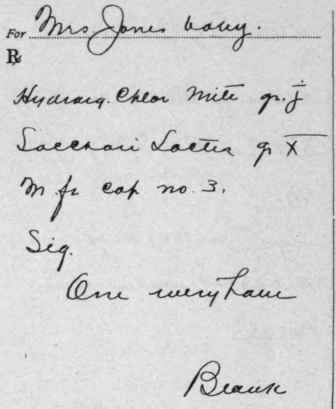 For Mrs Jones baby.
℞
Hydrarg. Chlor Mite gr. j
Sacchari Lactis gr X
M ft cap no. 3.
Sig.
One every hour
Blank